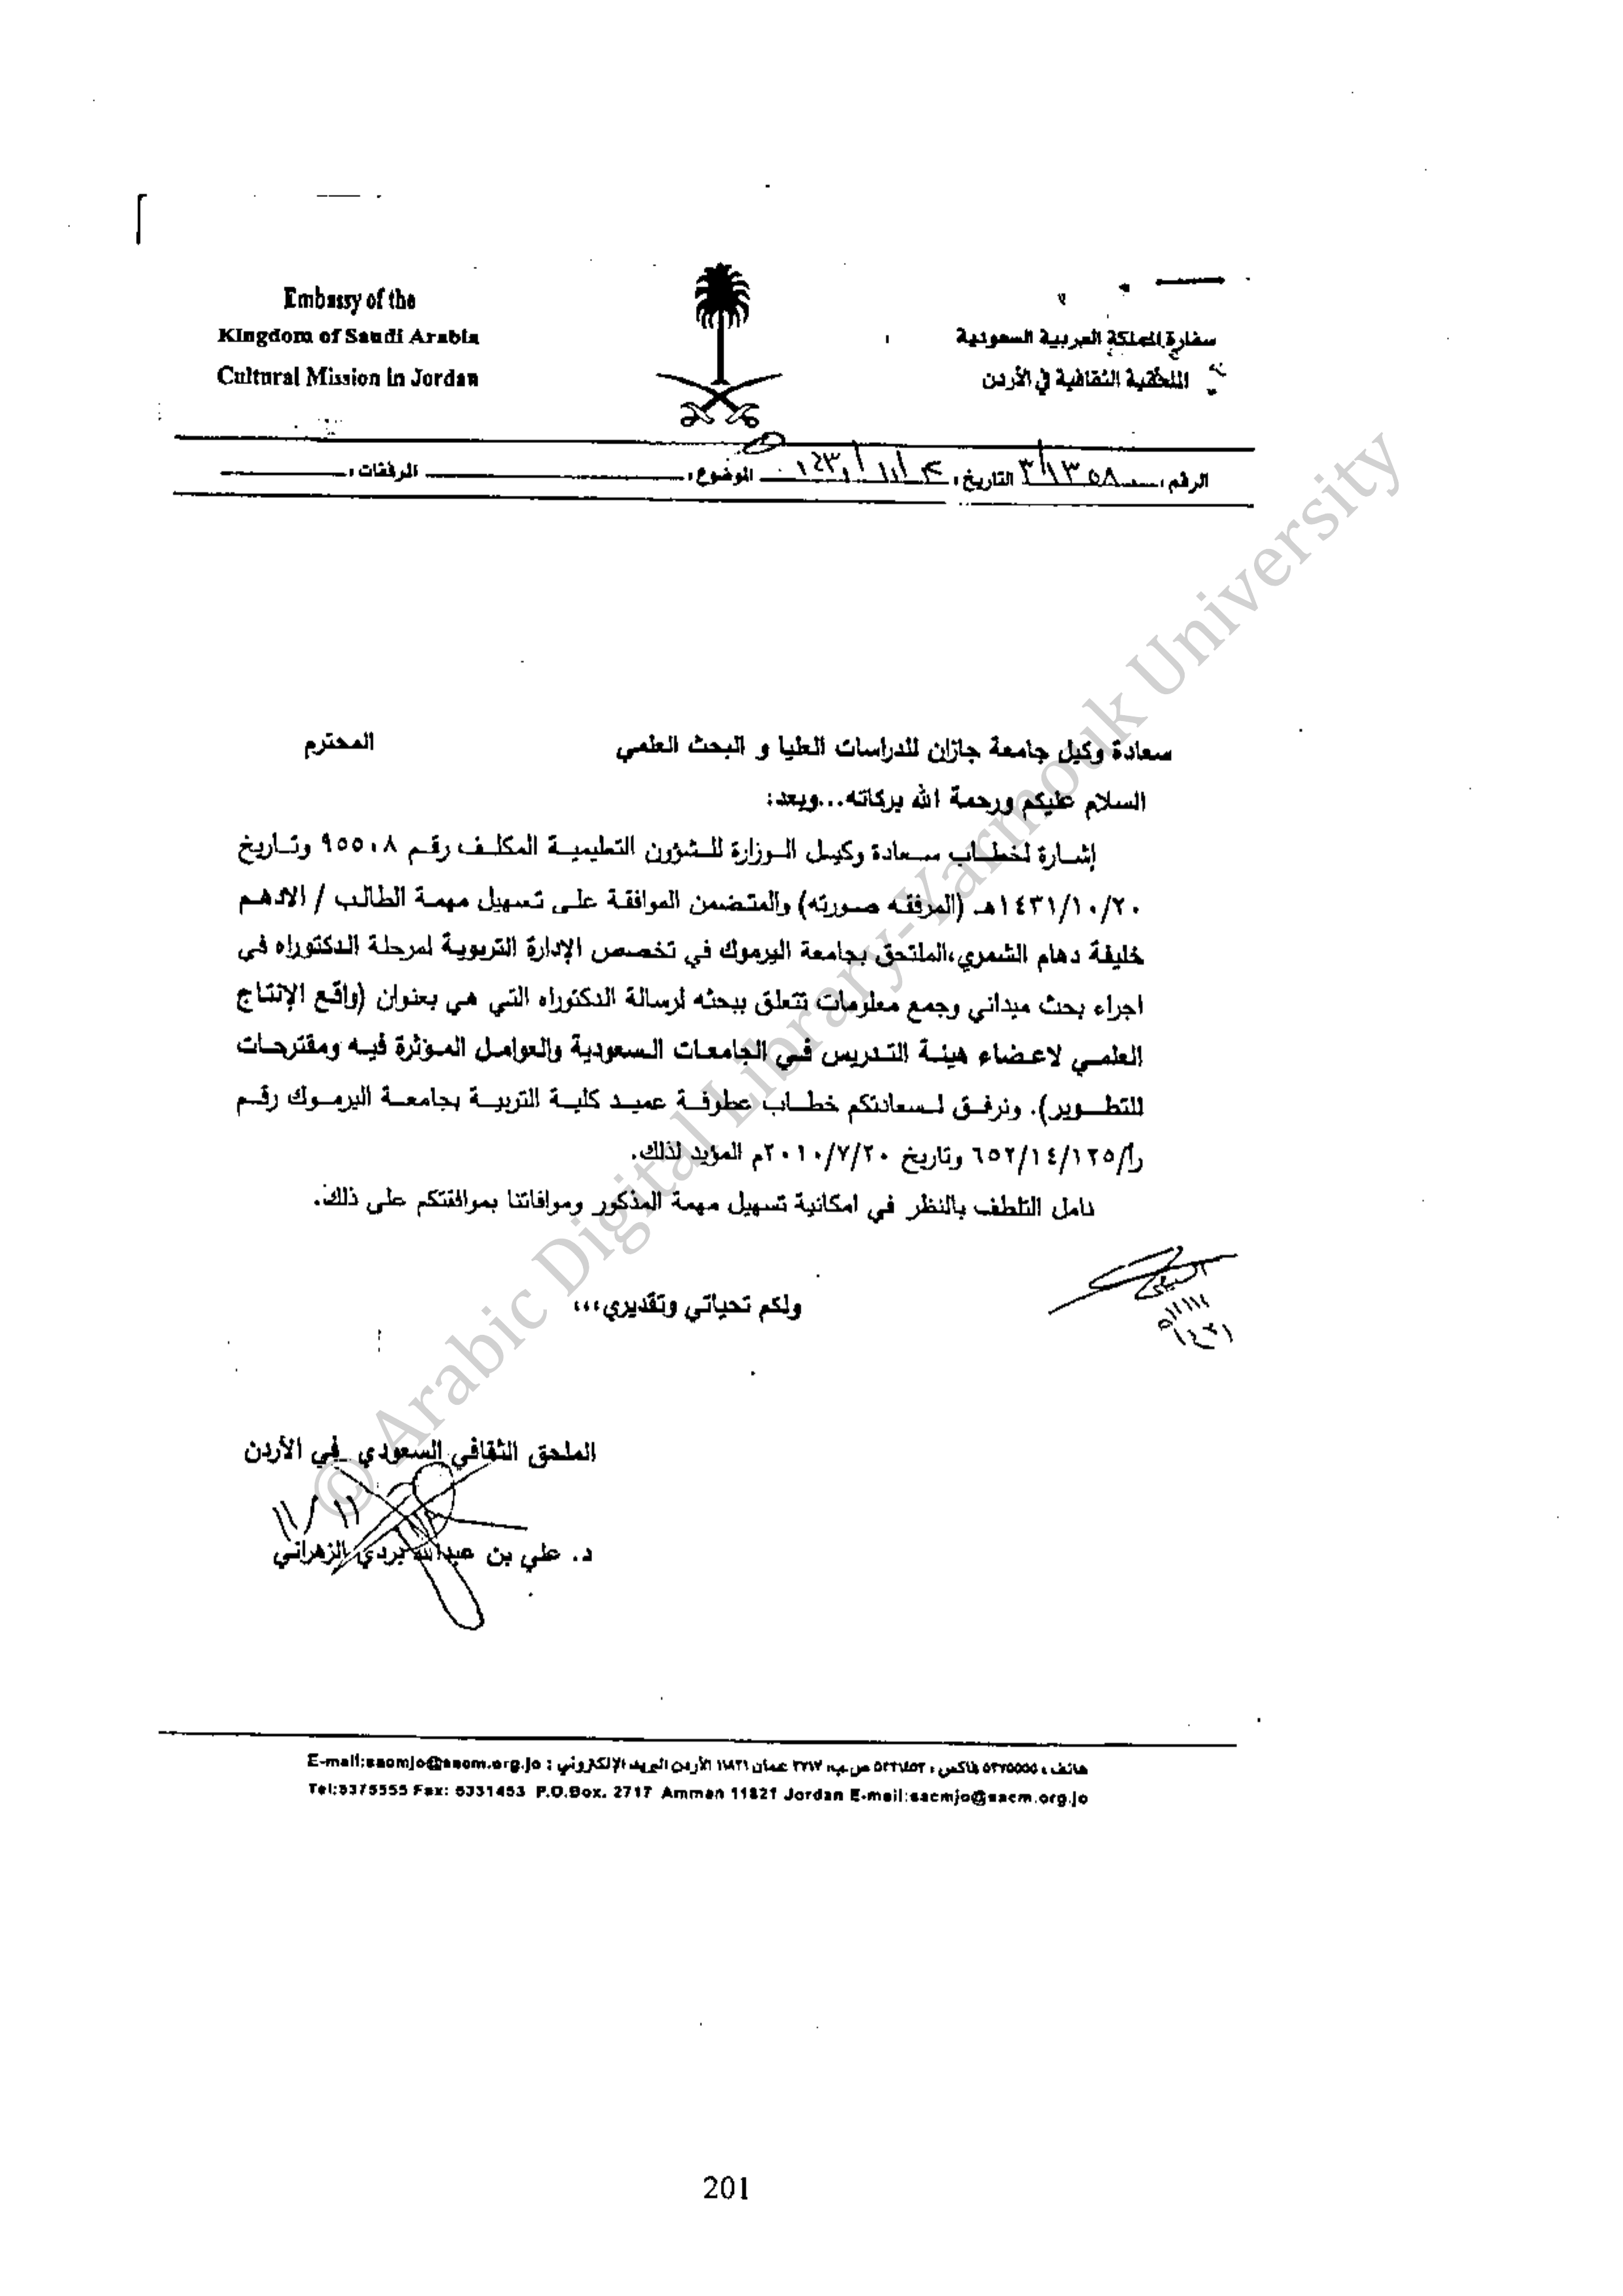 Embassy of the
Kingdom of Saudi Arabia
Cultural Mission in Jordan
سفارة المملكة العربية السعودية
الملحقية الثقافية في الأردن
الرقم: ٣/١٣٥٨ التاريخ: الموضوع: المرفقات:
سعادة وكيل جامعة جازان للدراسات العليا و البحث العلمي المحترم
السلام عليكم ورحمة الله بركاته...وبعد:
إشارة لخطاب سعادة وكيل الوزارة للشؤون التعليمية المكلف رقم ٩٥٥٠٨ وتاريخ
١٤٣١/١٠/٢٠هـ (المرفقه صورته) والمتضمن الموافقة على تسهيل مهمة الطالب / الادهم
خليفة دهام الشمري،الملتحق بجامعة اليرموك في تخصص الإدارة التربوية لمرحلة الدكتوراه في
اجراء بحث ميداني وجمع معلومات تتعلق ببحثه لرسالة الدكتوراه التي هي بعنوان (واقع الإنتاج
العلمي لاعضاء هيئة التدريس في الجامعات السعودية والعوامل المؤثرة فيه ومقترحات
للتطوير). ونرفق لسعادتكم خطاب عطوفة عميد كلية التربية بجامعة اليرموك رقم
رأ/٦٥٢/١٤/١٢٥ وتاريخ ٢٠١٠/٧/٢٠م المؤيد لذلك.
نامل التلطف بالنظر في امكانية تسهيل مهمة المذكور وموافاتنا بموافقتكم على ذلك.
ولكم تحياتي وتقديري،،،
الملحق الثقافي السعودي في الأردن
١١/١١
د. علي بن عبدالله بردي الزهراني
هاتف: ٥٣٧٥٥٥٥ فاكس: ٥٣٣١٤٥٣ ص.ب: ٢٧١٧ عمان ١١٨٢١ الأردن البريد الإلكتروني: E-mail:sacmjo@sacm.org.jo
Tel:5375555 Fax: 5331453 P.O.Box. 2717 Amman 11821 Jordan E-mail:sacmjo@sacm.org.jo
201
© Arabic Digital Library-Yarmouk University